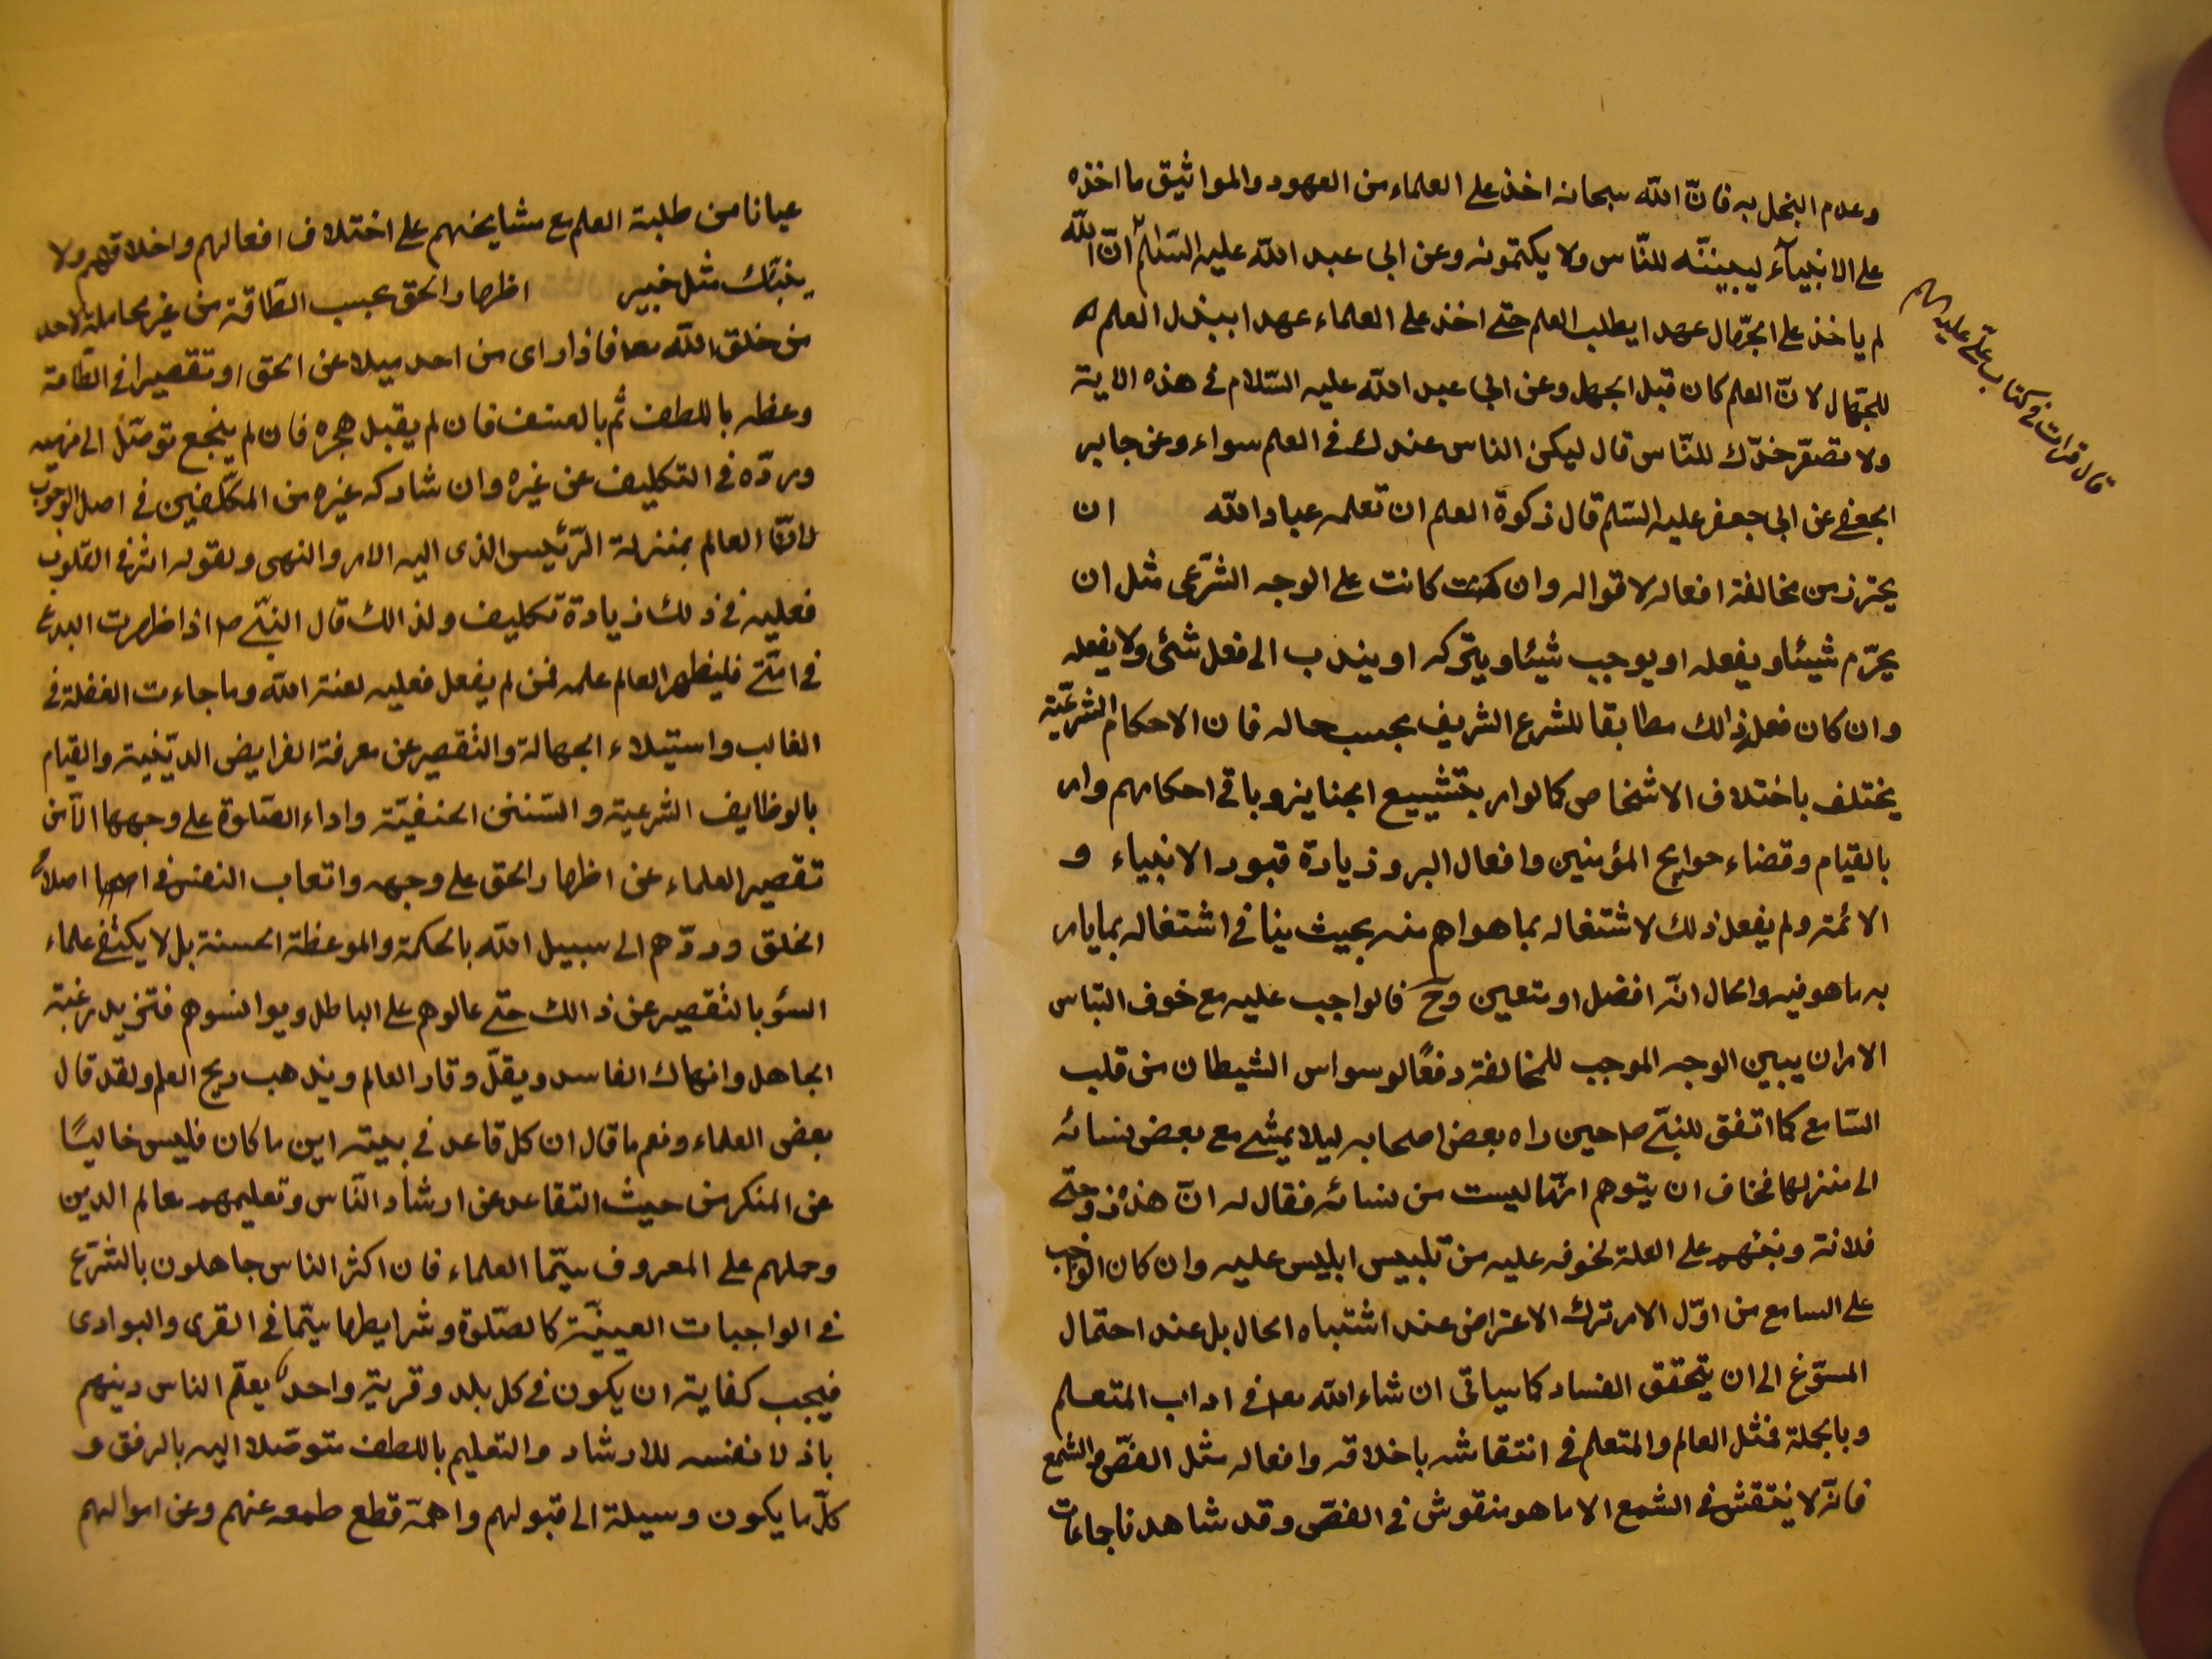 وعدم البخل به فانّ الله سبحانه اخذ على العلماء من العهود والمواثيق ما اخذه
على الانبياء ليبيننّه للنّاس ولا يكتمونه وعن ابي عبد الله عليه السّلام انّ الله
قال قرات في كتاب علىّ عليه السلام
لم ياخذ على الجهّال عهدا يطلب العلم حتى اخذ على العلماء عهدا ببذل العلم
للجهّال لانّ العلم كان قبل الجهل وعن ابي عبد الله عليه السّلام في هذه الاية
ولا تصعّر خدّك للنّاس قال ليكن الناس عندك في العلم سواء وعن جابر
الجعفي عن ابي جعفر عليه السّلم قال زكوة العلم ان تعلمه عباد الله ان
يحترز من مخالفة افعاله لاقواله وان كانت على الوجه الشّرعى مثل ان
يحرّم شيئا ويفعله او يوجب شيئا ويتركه او يندب الى فعل شئ ولا يفعله
وان كان فعله ذالك مطابقا للشرع الشريف بحسب حاله فان الاحكام الشرعيّة
يختلف باختلاف الاشخاص كما لو امر بتشييع الجنايز وباقي احكامهم وامر
بالقيام وقضاء حوايج المؤمنين وافعال البر وزيادة قبور الانبياء و
الائمة ولم يفعل ذلك لاشتغاله بما هو اهم منه بحيث ينافي اشتغاله بما يامر
به ما هو فيه والحال انّه افضل او متعين وح فالواجب عليه مع خوف التباس
الامر ان يبين الوجه الموجب للمخالفة دفعًا لوسواس الشيطان من قلب
السّامع كما اتفق للنبيّ ص حين راه بعض اصحابه ليلا يمشي مع بعض نسائه
الى منزلها فخاف ان يتوهم انّها ليست من نسائه فقال له انّ هذه زوجتي
فلانة ونبّهه على العلة لخوفه عليه من تلبيس ابليس عليه وان كان الواجب
على السامع من اوّل الامر ترك الاعتراض عند اشتباه الحال بل عند احتمال
المسوّغ الى ان يتحقق الفساد كما سياتى ان شاء الله تعا في اداب المتعلم
وبالجملة فمثل العالم والمتعلم في انتقاشه باخلاقه وافعاله مثل الفصّ والشمع
فانّه لا ينتقش في الشمع الا ما هو منقوش في الفصّ وقد شاهدنا جاعات
عيانا من طلبة العلم مع مشايخهم على اختلاف افعالهم واخلاقهم ولا
ينبّئك مثل خبير اظهار الحق بحسب الطّاقة من غير مجاملة لاحد
من خلق الله تعا فاذا راى من احد ميلا عن الحق او تقصيرا في الطّاعة
وعظه باللطف ثم بالعنف فان لم يقبل هجره فان لم ينجع توصّل الى نهيه
وردّه في التكليف عن غيره وان شاركه غيره من المكلّفين في اصل الوجوب
لانّ العالم بمنزلة الرّئيس الذى اليه الامر والنهى ولقوله اثر في القلوب
فعليه في ذلك زيادة تكليف ولذالك قال النبيّ ص اذا ظهرت البدع
في امّتي فليظهر العالم علمه فمن لم يفعل فعليه لعنة الله وما جاءت الغفلة في
الغالب واستيلاء الجهالة والتقصير عن معرفة الفرايض الدّينية والقيام
بالوظايف الشرعية والسّنن الحنفيّة واداء الصّلوة على وجهها الّا من
تقصير العلماء عن اظهار الحق على وجهه واتعاب النفس في اصلاح
الخلق وردّهم الى سبيل الله بالحكمة والموعظة الحسنة بل لا يكتفي علماء
السّؤ بالتقصير عن ذالك حتى عالوهم على الباطل ويوانسوهم فتزيد رغبة
الجاهل وانهماك الفاسد ويقلّ وقار العالم ويذهب ريح العلم ولقد قال
بعض العلماء ونعم ما قال ان كل قاعد في بيته اين ما كان فليس خاليًا
عن المنكر من حيث التقاعد عن ارشاد النّاس وتعليمهم معالم الدين
وحملهم على المعروف سيّما العلماء فان اكثر الناس جاهلون بالشّرع
في الواجبات العينيّة كالصّلوة وشرايطها سيّما في القرى والبوادى
فيجب كفاية ان يكون في كل بلد وقرية واحد يعلّم الناس دينهم
باذلا نفسه للارشاد والتعليم باللطف متوصّلا اليه بالرفق و
كلّ ما يكون وسيلة الى قبولهم واهمّه قطع طمعه عنهم وعن اموالهم